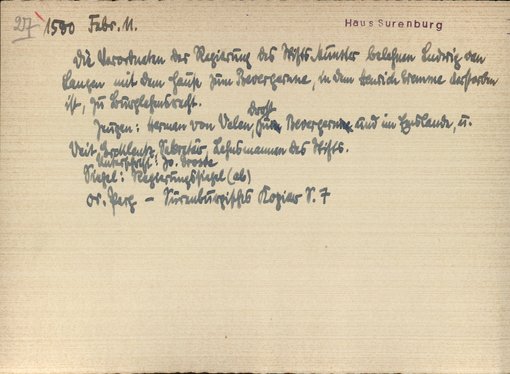 207 1580 Febr. 11. Haus Surenburg
Die Verordneten der Regierung des Stifts Münster belehnen Ludwig von
Langen mit dem Hause zum Bevergerne, in dem Henrich Gramme verstorben
ist, zu Burglehnsrecht.
Zeugen: Herman von Velen, Drost zum Bevergerne und im Emslande, u.
Veit Sekretär, Lehnsmannen des Stifts.
Unterschrift: Jo. Droste
Siegel: Regierungssiegel (ab)
Or. Perg – Surenburgisches Kopiar S. 7